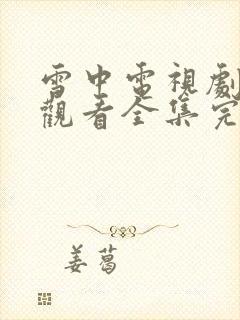 雪中電視劇
觀看全集完
姜葛